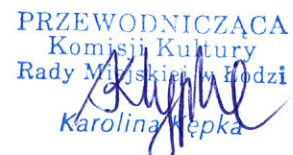 PRZEWODNICZĄCA
Komisji Kultury
Rady Miejskiej w Łodzi
Karolina Kępka